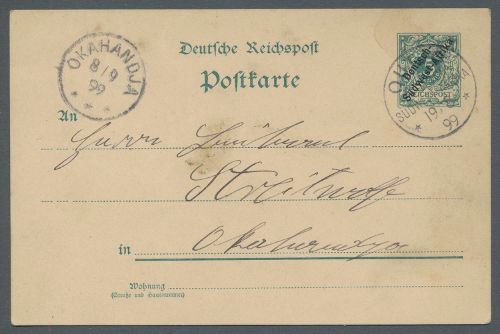 Deutsche Reichspost
Postkarte
OKAHANDJA
8/9
99
Deutsch-
Südwest-Afrika
REICHSPOST
19.
99
An
Herrn Leutnant
Streitwolf
in Okahandja
Wohnung
(Straße und Hausnummer)